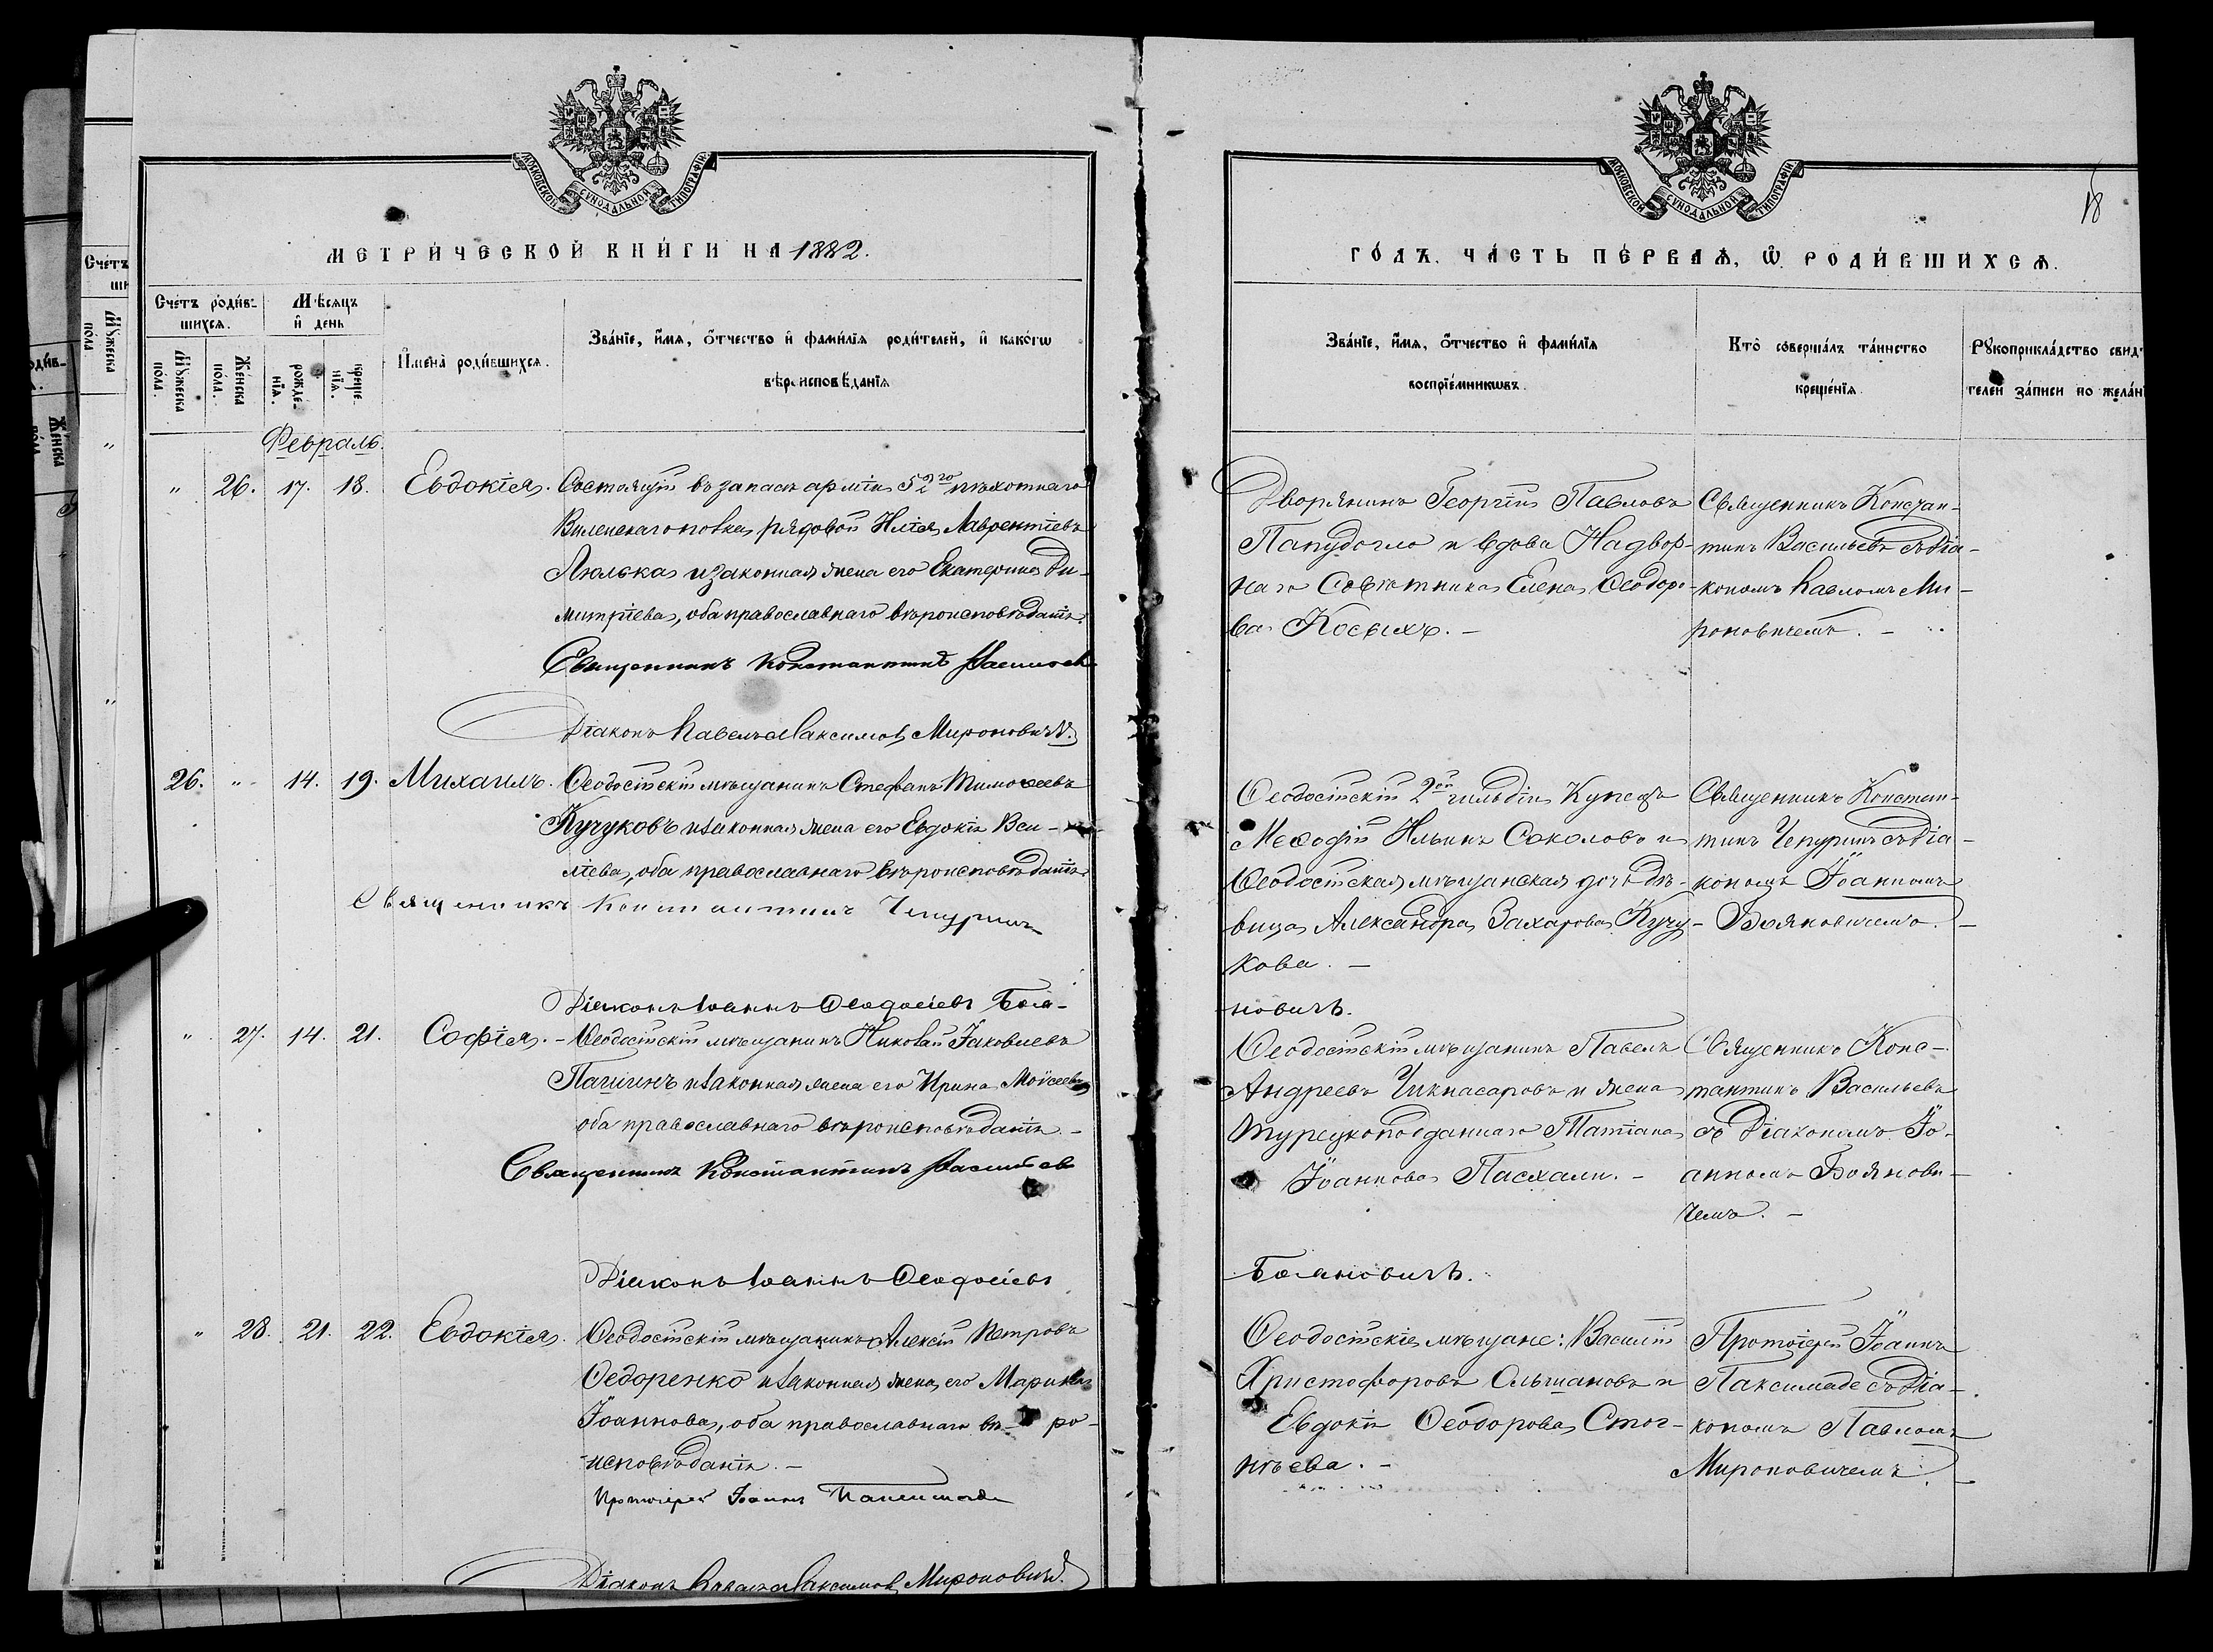 МОСКОВСКОЙ СѴНОДАЛЬНОЙ ТИПОГРАФІИ
МЕТРИ́ЧЕСКОЙ КНИ́ГИ НА 1882.
Счетъ родив-
шихся.
Мѣсяцъ
и день
Мужеска пола.
Женска пола.
рожде-
нія.
креще-
нія.
Имена родившихся.
Званіе, имя, отчество и фамилія родителей, и какогѡ
вѣроисповѣданія
Февраль.
" 26. 17. 18. Евдокія. Состоящій въ запасѣ арміи 52го пѣхотнаго
Виленскаго полка рядовой Илія Лаврентіевъ
Люлька и законная жена его Екатерина Ди-
митріева, оба православнаго вѣроисповѣданія
Священникъ Константинъ Васильевъ
Діаконъ Павелъ Максимовъ Мироновичъ.
26. " 14. 19. Михаилъ. Ѳеодосійскій мѣщанинъ Стефанъ Тимоѳеевъ
Кучуковъ и законная жена его Евдокія Васи-
ліева, оба православнаго вѣроисповѣданія
Священникъ Константинъ Чепуринъ
Діаконъ Іоаннъ Ѳеодосіевъ Боя-
" 27. 14. 21. Софія. - Ѳеодосійскій мѣщанинъ Николай Іаковлевъ
Пашинъ и законная жена его Ирина Моѵсеева
оба православнаго вѣроисповѣданія. -
Священникъ Константинъ Васильевъ
Діаконъ Іоаннъ Ѳеодосіевъ
" 28. 21. 22. Евдокія. Ѳеодосійскій мѣщанинъ Алексій Петровъ
Ѳедоренко и законная жена его Марина
Іоаннова, оба православнаго вѣ- ро-
исповѣданія. -
Протоіерей Іоаннъ Паксимаде
Діаконъ Павелъ Максимовъ Мироновичъ.
МОСКОВСКОЙ СѴНОДАЛЬНОЙ ТИПОГРАФІИ
18
ГО́ДЪ. ЧА́СТЬ ПЕ́РВАѦ, Ѡ РОДИ́ВШИХСѦ.
Званіе, имя, отчество и фамилія
воспріемникѡвъ.
Кто совершалъ таинство
крещенія.
Рꙋкоприкладство свид
телей записи по желан
Дворянинъ Георгій Павловъ
Папудогло и вдова Надвор-
наго Совѣтника Елена Ѳеодоро-
ва Косыхъ. -
Священникъ Констан-
тинъ Васильевъ съ Діа-
кономъ Павломъ Ми-
роновичемъ. -
Ѳеодосійскій 2ой гильдіи Купецъ
Меѳодій Ильинъ Соколовъ и
Ѳеодосійская мѣщанская дочь дѣ-
вица Александра Захарова Кучу-
кова. -
новичъ.
Священникъ Констан-
тинъ Чепуринъ съ Діа-
кономъ Іоанномъ
Бояновичемъ. -
Ѳеодосійскій мѣщанинъ Павелъ
Андреевъ Чикнасаровъ и жена
турецкоподданнаго Татіана
Іоаннова Пасхали. -
Бояновичъ.
Священникъ Конс-
тантинъ Васильевъ
съ Діакономъ Іо-
анномъ Боянови-
чемъ. -
Ѳеодосійскіе мѣщане: Василій
Христофоровъ Ольшановъ и
Евдокія Ѳеодорова Стог-
нѣева. -
Протоіерей Іоаннъ
Паксимаде съ Діа-
кономъ Павломъ
Мироновичемъ.